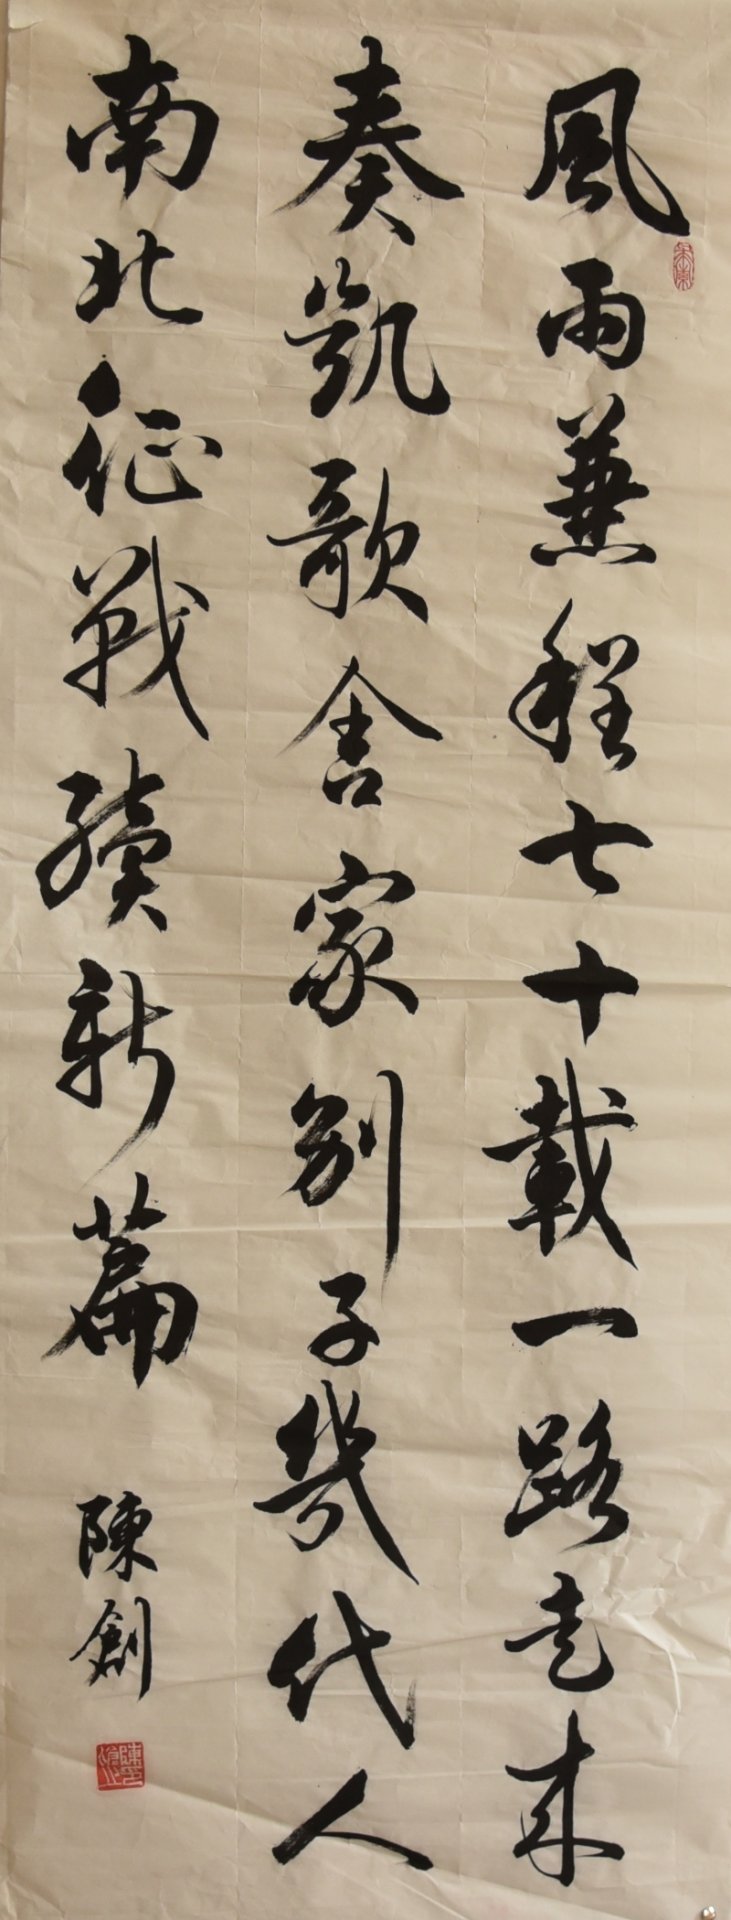 風雨兼程七十載一路走来
奏凱歌舍家別子幾代人
南北征戰續新篇
陳創